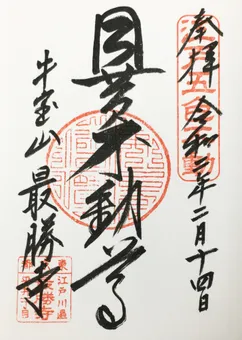 奉拝 令和二年二月十四日
目黄不動尊
牛宝山 最勝寺
東江戸川區
最勝寺